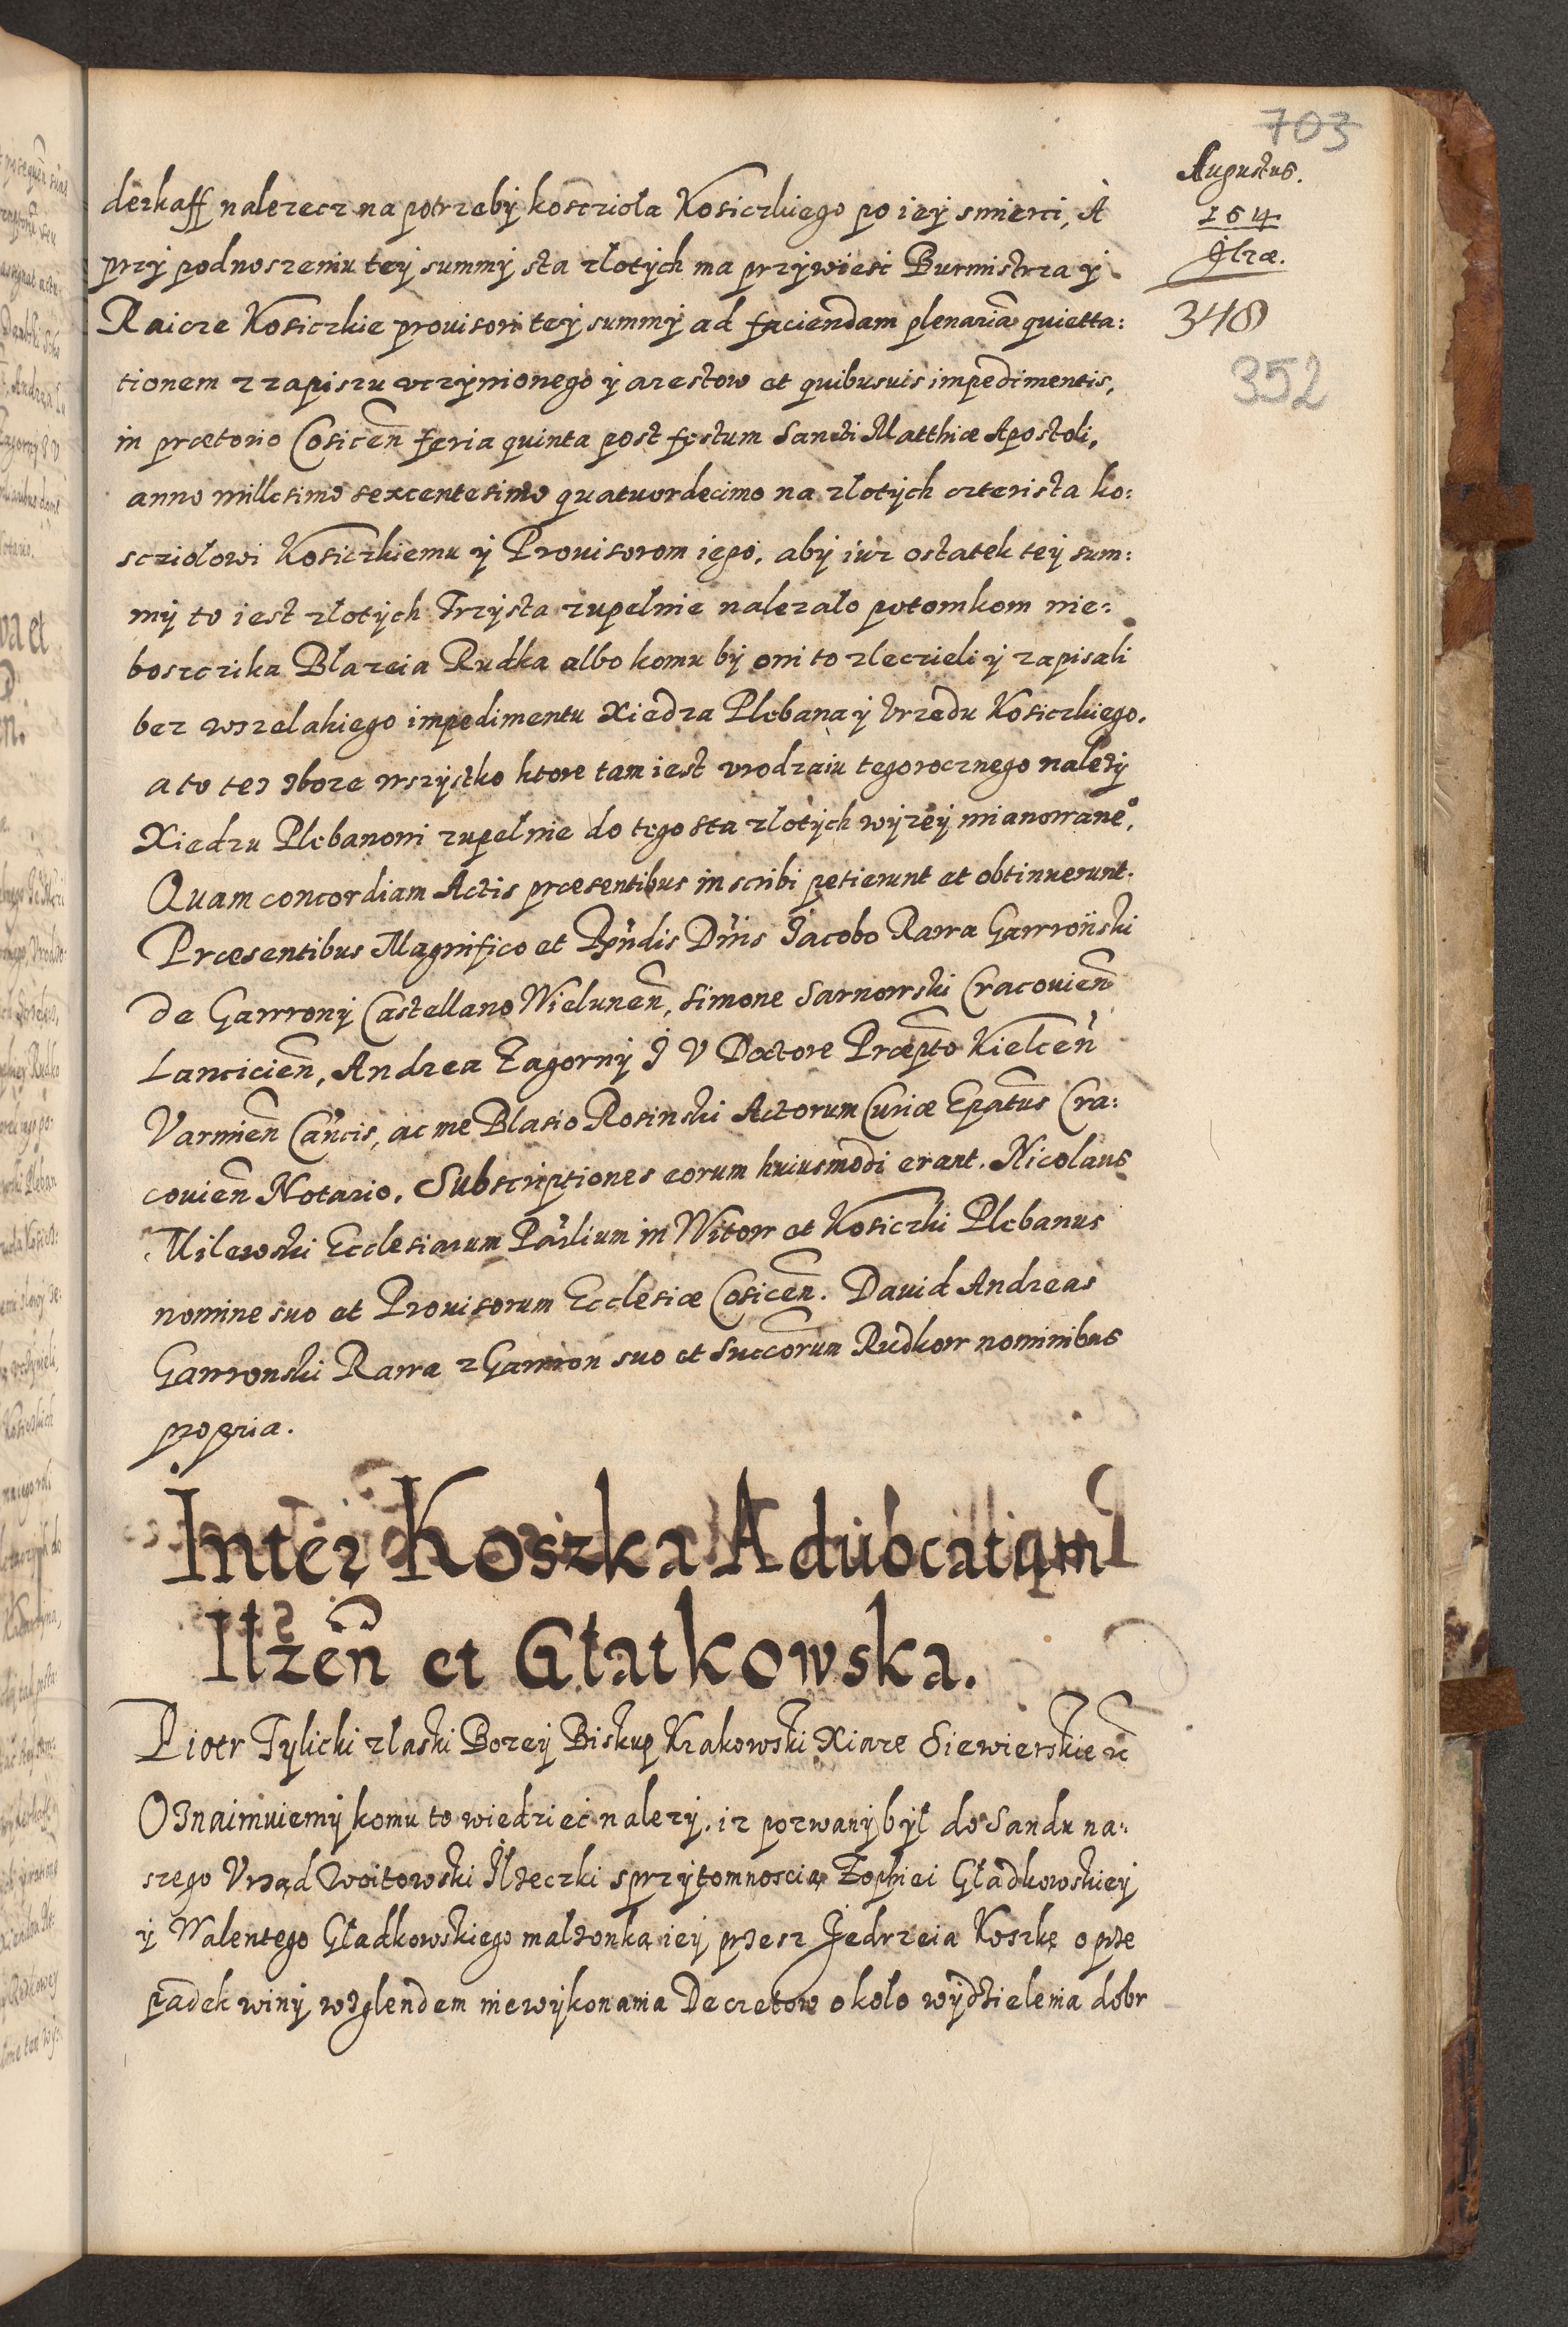 703
Augustus.
1614
Ilzæ.
348
352
derkaff nalezecz na potrzeby koscziola Kosiczkiego po iey smierci, A
przy podnoszeniu tey summy sta zlotych ma przywiesc Burmistrza y
Raicze Kosiczkie prouisori tey summy ad faciendam plenariã quietta:
tionem z zapiszu vczynionego y arestow et quibusuis impedimentis,
in prætorio Cosiceñ feria quinta post festum Sancti Matthiæ Apostoli,
anno millesimo sexcentesimo quatuordecimo na zlotych czterista ko:
scziolowi Kosiczkiemu y Prouisorom iego, aby iuz ostatek tey sum:
my to iest zlotych Trzysta zupelnie nalezalo potomkom nie:
boszczika Blazeia Rudka albo komu by oni to zleczieli y zapisali
bez wszelakiego impedimentu Xiedza Plebana y Vrzedu Kosiczkiego.
a to tez zboze wszystko ktore tam iest vrodzaiu tegorocznego nalezy
Xiedzu Plebanowi zupelnie do tego sta zlotych wyzey mianowane°,
Quam concordiam Actis præsentibus inscribi petierunt et obtinuerunt.
Præsentibus Magnifico et Rñdis Dñis Jacobo Rawa Gawroński
de Gawrony Castellano Wieluneñ, Simone Sarnowski Cracouieñ
Lancicieñ, Andrea Zagorny J V Doctore Præpto Kielceñ
Varmieñ Cañcis, ac me Blasio Rosinski Actorum Curiæ Epatus Cra:
couieñ Notario. Subscriptiones eorum huiusmodi erant. Nicolaus
Milewski Ecclesiarum Parlium in Witow et Kosiczki Plebanus
nomine suo et Prouisorum Ecclesiæ Cosiceñ. Dauid Andreas
Gawronski Rawa z Gawron suo et Succorum Rudkow nominibus
propria.
Inter Koszka Aduocatum
Ilzeñ et Glatkowska.
Piotr Tylicki z laski Bozey Biskup Krakowski Xiaze Siewierskie etc
Oznaimuiemy komu to wiedziec nalezy. iz pozwany był do Sandu na:
szego Vrząd Woitowski Ilzeczki s przytomnoscią Zophiei Gładkowskiey
y Walentego Gładkowskiego małzonka iey przesz Jedrzeia Koszkę o prze
padek winy wzglendem niewykonania Decretow około wydzielenia dobr